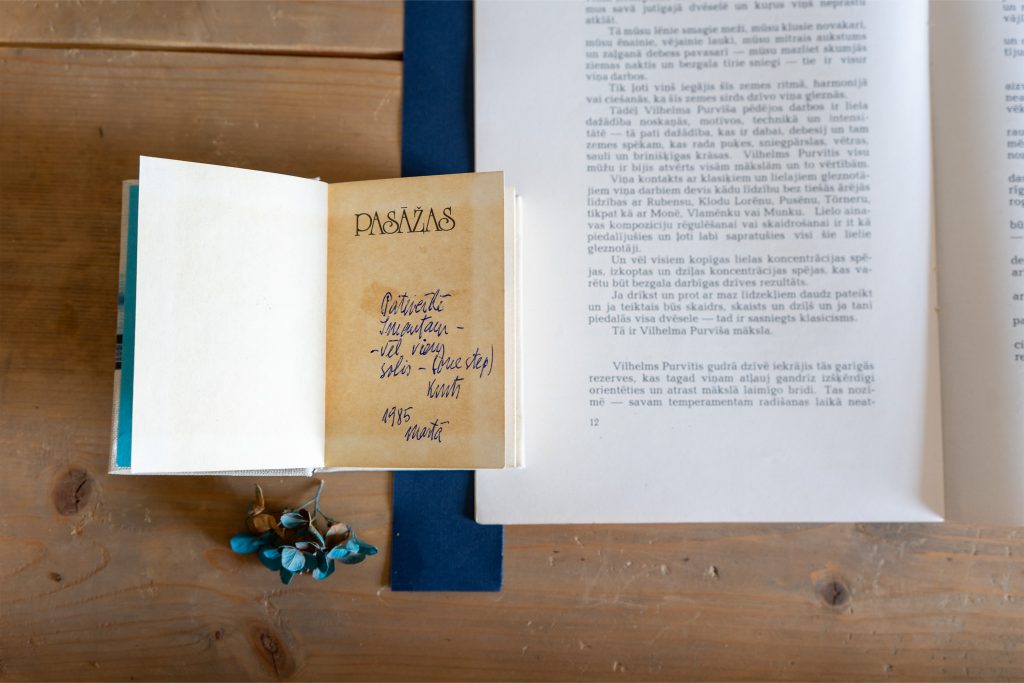 PASĀŽAS
Pateicībā
Imantam –
– vēl vienu
solis – (one step)
1985
martā
mus savā jutīgajā dvēselē un kuŗus viņš neprastu
atklāt.
Tā mūsu lēnie smagie meži, mūsu klusie novakari,
mūsu ēnainie, vējainie lauki, mūsu mitrais aukstums
un zaļganā debess pavasarī — mūsu mazliet skumjās
ziemas naktis un bezgala tīrie sniegi — tie ir visur
viņa darbos.
Tik ļoti viņš iegājis šīs zemes ritmā, harmonijā
vai ciešanās, ka šīs zemes sirds dzīvo viņa gleznās.
Tādēļ Vilhelma Purvīša pēdējos darbos ir liela
dažādība noskaņās, motīvos, technikā un intensi-
tātē — tā pati dažādība, kas ir dabai, debesīj un tam
zemes spēkam, kas rada puķes, sniegpārslas, vētras,
sauli un brīnišķīgas krāsas. Vilhelms Purvītis visu
mūžu ir bijis atvērts visām mākslām un to vērtībām.
Viņa kontakts ar klasiķiem un lielajiem gleznotā-
jiem viņa darbiem devis kādu līdzību bez tiešās ārējās
līdzības ar Rubensu, Klodu Lorēnu, Pusēnu, Törneru,
tikpat kā ar Monē, Vlamēnku vai Munku. Lielo aina-
vas kompoziciju rēgulēšanai vai skaidrošanai ir it kā
piedalījušies un ļoti labi sapratušies visi šie lielie
gleznotāji.
Un vēl visiem kopīgas lielas koncentrācijas spē-
jas, izkoptas un dziļas koncentrācijas spējas, kas va-
rētu būt bezgala darbīgas dzīves rezultāts.
Ja drīkst un prot ar maz līdzekļiem daudz pateikt
un ja teiktais būs skaidrs, skaists un dziļš un ja tanī
piedalās visa dvēsele — tad ir sasniegts klasicisms.
Tā ir Vilhelma Purvīša māksla.
Vilhelms Purvītis gudrā dzīvē iekrājis tās garīgās
rezerves, kas tagad viņam atļauj gandrīz izšķērdīgi
orientēties un atrast mākslā laimīgo brīdi. Tas nozī-
mē — savam temperamentam radīšanas laikā neat-
12